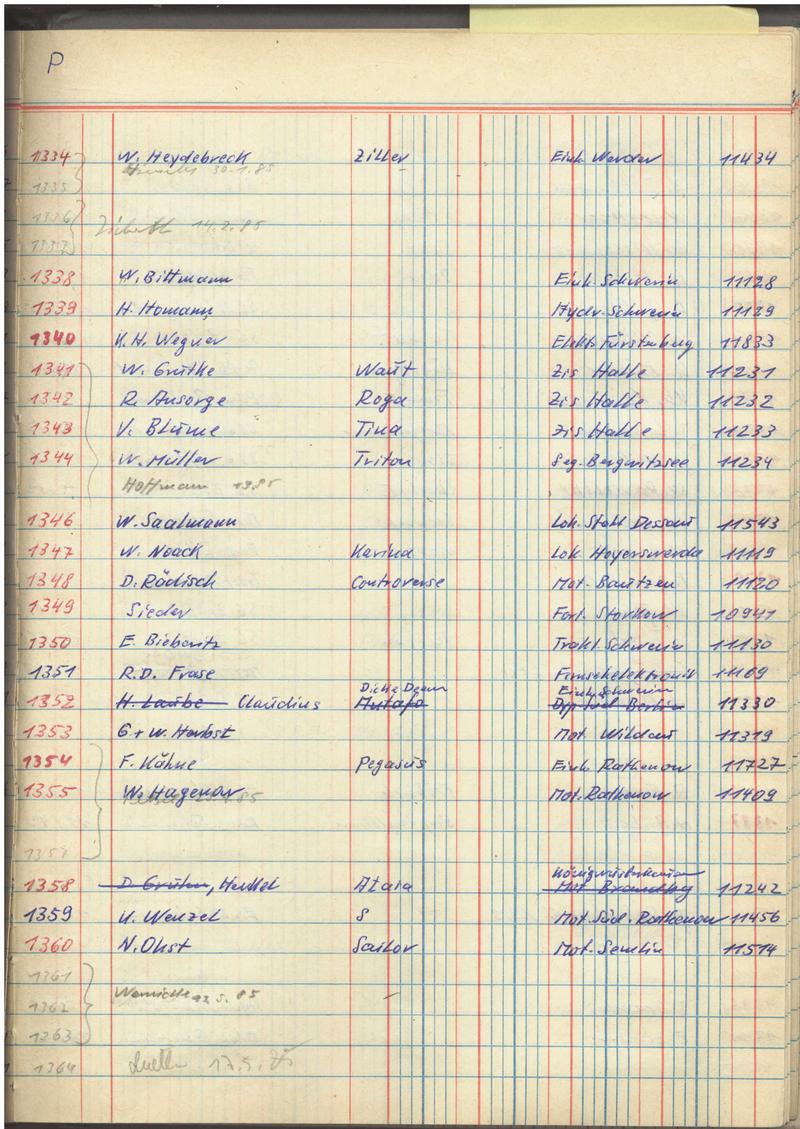 P
1334 W. Heydebreck Ziller Eink. Werder 11434
1335 30.1.85
1336
14.2.85
1337
1338 W. Bittmann Eink. Schwerin 11128
1339 H. Homann Hydr. Schwerin 11129
1340 K. H. Wegner Elekt. Fürstenberg 11833
1341 W. Grütke Waut Zis Halle 11231
1342 R. Ansorge Roga Zis Halle 11232
1343 V. Blüme Tina Zis Halle 11233
1344 W. Müller Triton Seg. Bergwitzsee 11234
Hoffmann
1346 W. Saalmann Lok. Stahl Dessau 11543
1347 W. Noack Karina Lok. Hoyerswerda 11119
1348 D. Rädisch Controverse Mot. Bautzen 11120
1349 Sieder Fort. Storkow 10941
1350 E. Bieberitz Trakt. Schwerin 11130
1351 R.D. Frase Fernsehelektronik 11109
Dicke Eink. Schwerin
1352 H. Laube Claudius Berlin 11330
1353 G + W. Herbst Mot. Wildau 11319
1354 F. Kähne Pegasus Eink. Rathenow 11727
1355 W. Hagenow Mot. Rathenow 11409
85
1357
Königswusterhausen
1358 D. Grühn, Henkel Ataia Mot. Brandbg 11242
1359 U. Wenzel S Mot. Süd. Rathenow 11456
1360 N. Ohst Sailor Mot. Semlin 11514
1361
Wernicke 12.5.85
1362
1363
1364 17.5.85